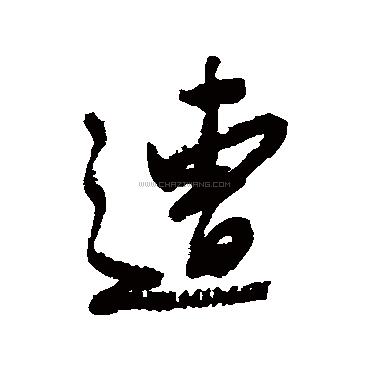 遭
WWW.CHAZIWANG.COM